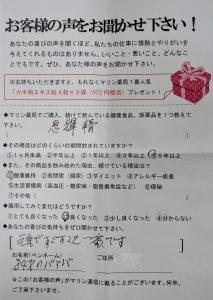 お客様の声をお聞かせ下さい！
あなたの喜びの声を聞くほど、私たちの仕事に情熱とやりがいを
与えてくれるものはありません。いいこと、悪いこと、どんなこ
とでもです。ぜひ、あなた様の声をお聞かせ下さい。
※お持ちいただきますと、もれなくマリン薬局1番人気
「カキ肉エキス粒4粒×3袋（972円相当）プレゼント！
◆マリン薬局でご購入、続けて飲んでいる健康食品、医薬品を1つ教えて
下さい。
◆その商品はどのくらいの期間飲まれていますか？
①1ヶ月未満 ②半年以上 ③1年以上 ④3年以上 ⑤5年以上
◆また、その商品を飲み始めた理由、続けている理由は？
①健康維持 ②夜間頻尿 ③頭痛 ④ダイエット ⑤アレギー疾患
⑥生活習慣病（高血圧・糖尿病・循環器疾患など） ⑥便秘
⑦その他（ ）
◆服用してみて変化はどうですか？
①とても良くなった ②良くなった ③少し良くなった ④分からない
◆あなたの喜びの気持ちをぜひ聞かせて下さい。
元気ですごすこと一番です
お名前(ペンネーム) ご住所
84才のババ
★この「お客様の声」がマリン通信に載ることがございます。何卒、
ご了承下さいませ。